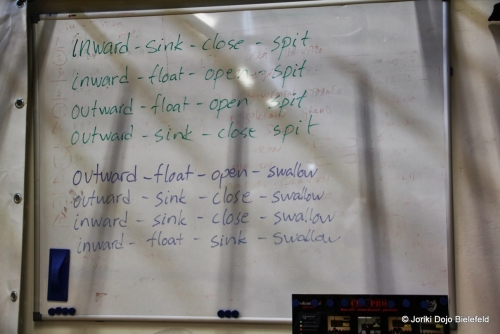 inward - sink - close - spit
inward - float - open - spit
outward - float - open spit
outward - sink - close spit
outward - float - open - swallow
outward - sink - close - swallow
inward - sink - close - swallow
inward - float - sink - swallow
© Joriki Dojo Bielefeld